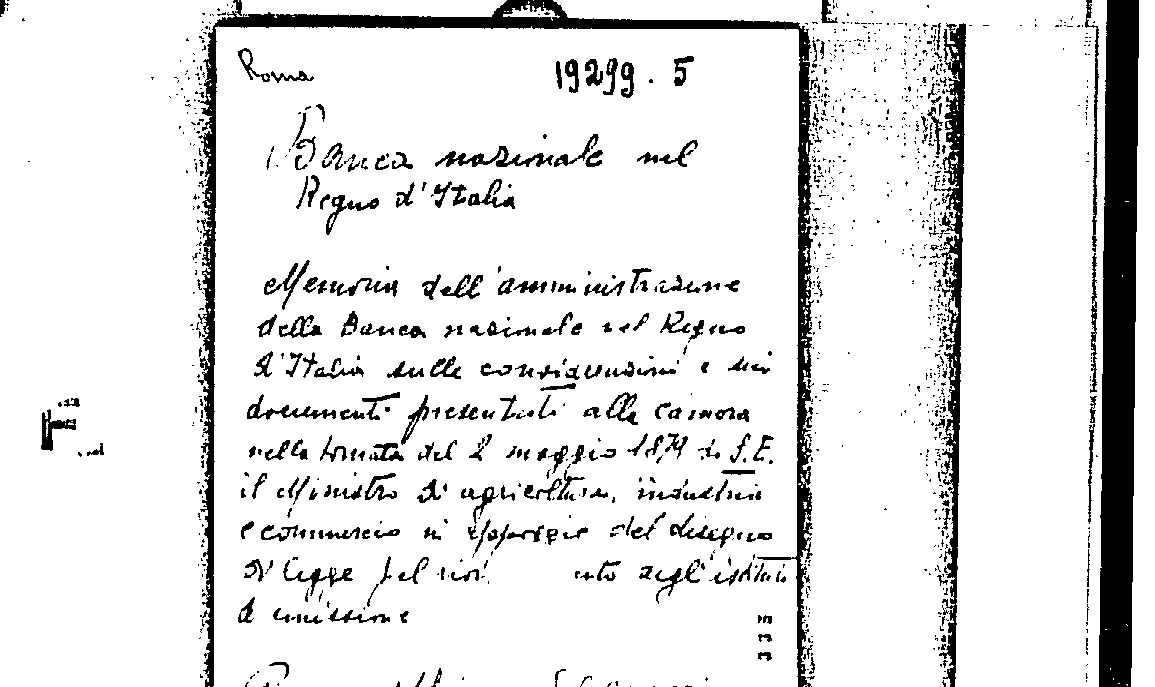 Roma
19299.5
Banca nazionale nel
Regno d'Italia
Memoria dell'amministrazione
della Banca nazionale nel Regno
d'Italia sulle considerazioni e sui
documenti presentati alla camera
nella tornata del 2 maggio 1879 da S.E.
il Ministro di agricoltura, industria
e commercio in appoggio del disegno
di legge pel degl'istituti
di emissione